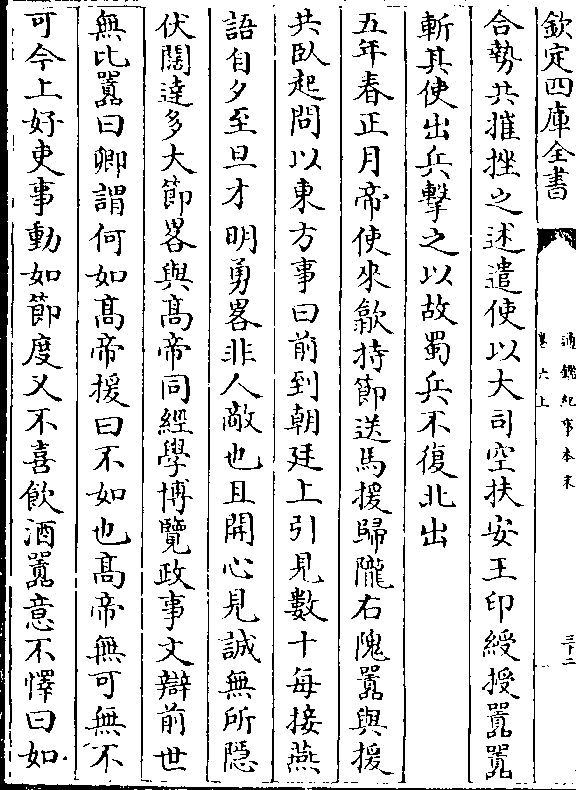 欽定四庫全書
通鑑紀事本末
卷六上
三十二
合勢共摧挫之述遣使以大司空扶安王印綬授囂囂
斬其使出兵擊之以故蜀兵不復北出
五年春正月帝使來歙持節送馬援歸隴右隗囂與援
共臥起問以東方事曰前到朝廷上引見數十每接燕
語自夕至旦才明勇畧非人敵也且開心見誠無所隱
伏闊達多大節畧與高帝同經學博覽政事文辯前世
無比囂曰卿謂何如高帝援曰不如也高帝無可無不
可今上好吏事動如節度又不喜飲酒囂意不懌曰如